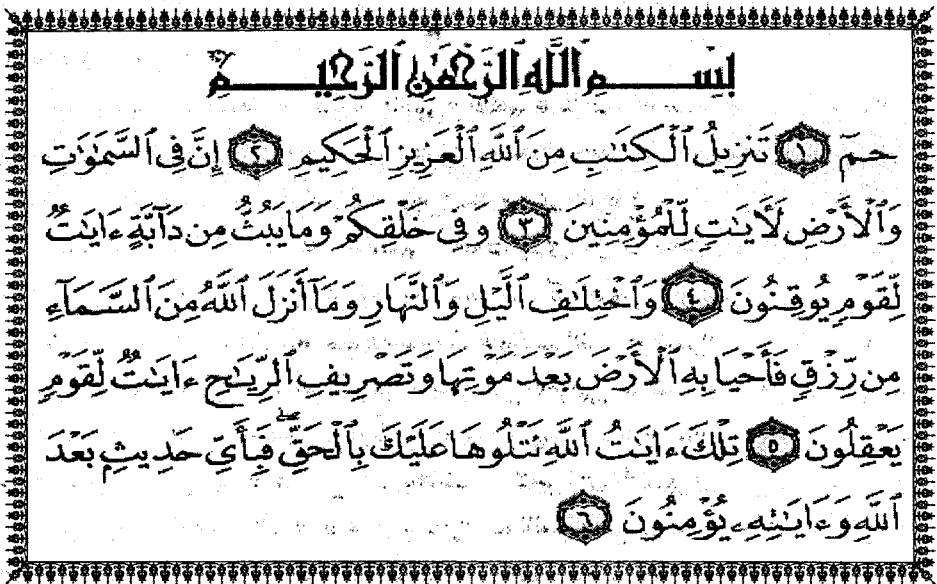 بِسْمِ ٱللَّهِ ٱلرَّحْمَٰنِ ٱلرَّحِيمِ
حمٓ ١ تَنزِيلُ ٱلْكِتَٰبِ مِنَ ٱللَّهِ ٱلْعَزِيزِ ٱلْحَكِيمِ ٢ إِنَّ فِى ٱلسَّمَٰوَٰتِ
وَٱلْأَرْضِ لَأٓيَٰتٍ لِّلْمُؤْمِنِينَ ٣ وَفِى خَلْقِكُمْ وَمَا يَبُثُّ مِن دَآبَّةٍ ءَايَٰتٌ
لِّقَوْمٍ يُوقِنُونَ ٤ وَٱخْتِلَٰفِ ٱلَّيْلِ وَٱلنَّهَارِ وَمَآ أَنزَلَ ٱللَّهُ مِنَ ٱلسَّمَآءِ
مِن رِّزْقٍ فَأَحْيَا بِهِ ٱلْأَرْضَ بَعْدَ مَوْتِهَا وَتَصْرِيفِ ٱلرِّيَٰحِ ءَايَٰتٌ لِّقَوْمٍ
يَعْقِلُونَ ٥ تِلْكَ ءَايَٰتُ ٱللَّهِ نَتْلُوهَا عَلَيْكَ بِٱلْحَقِّۖ فَبِأَىِّ حَدِيثٍۭ بَعْدَ
ٱللَّهِ وَءَايَٰتِهِۦ يُؤْمِنُونَ ٦